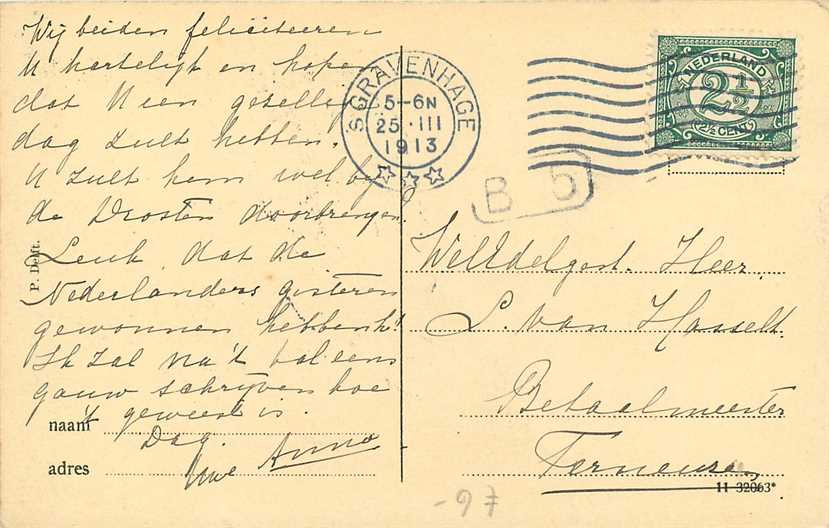 Wij beiden feliciteeren
U hartelijk en hopen
dat U een gezellige
dag zult hebben.
U zult hem wel bij
de Drosten doorbrengen.
Leuk, dat de
Nederlanders gisteren
gewonnen hebben hè!
Ik zal na 't bal eens
gauw schrijven hoe
't geweest is.
Dag.
Uwe Anna
naam
adres
P. Delft.
'S GRAVENHAGE
5-6N
25 III
1913
B 5
NEDERLAND
2 1/2
2½ CENT
WelEdelgest. Heer
S. van Hasselt
Betaalmeester
Terneuzen
11 32063*
-97